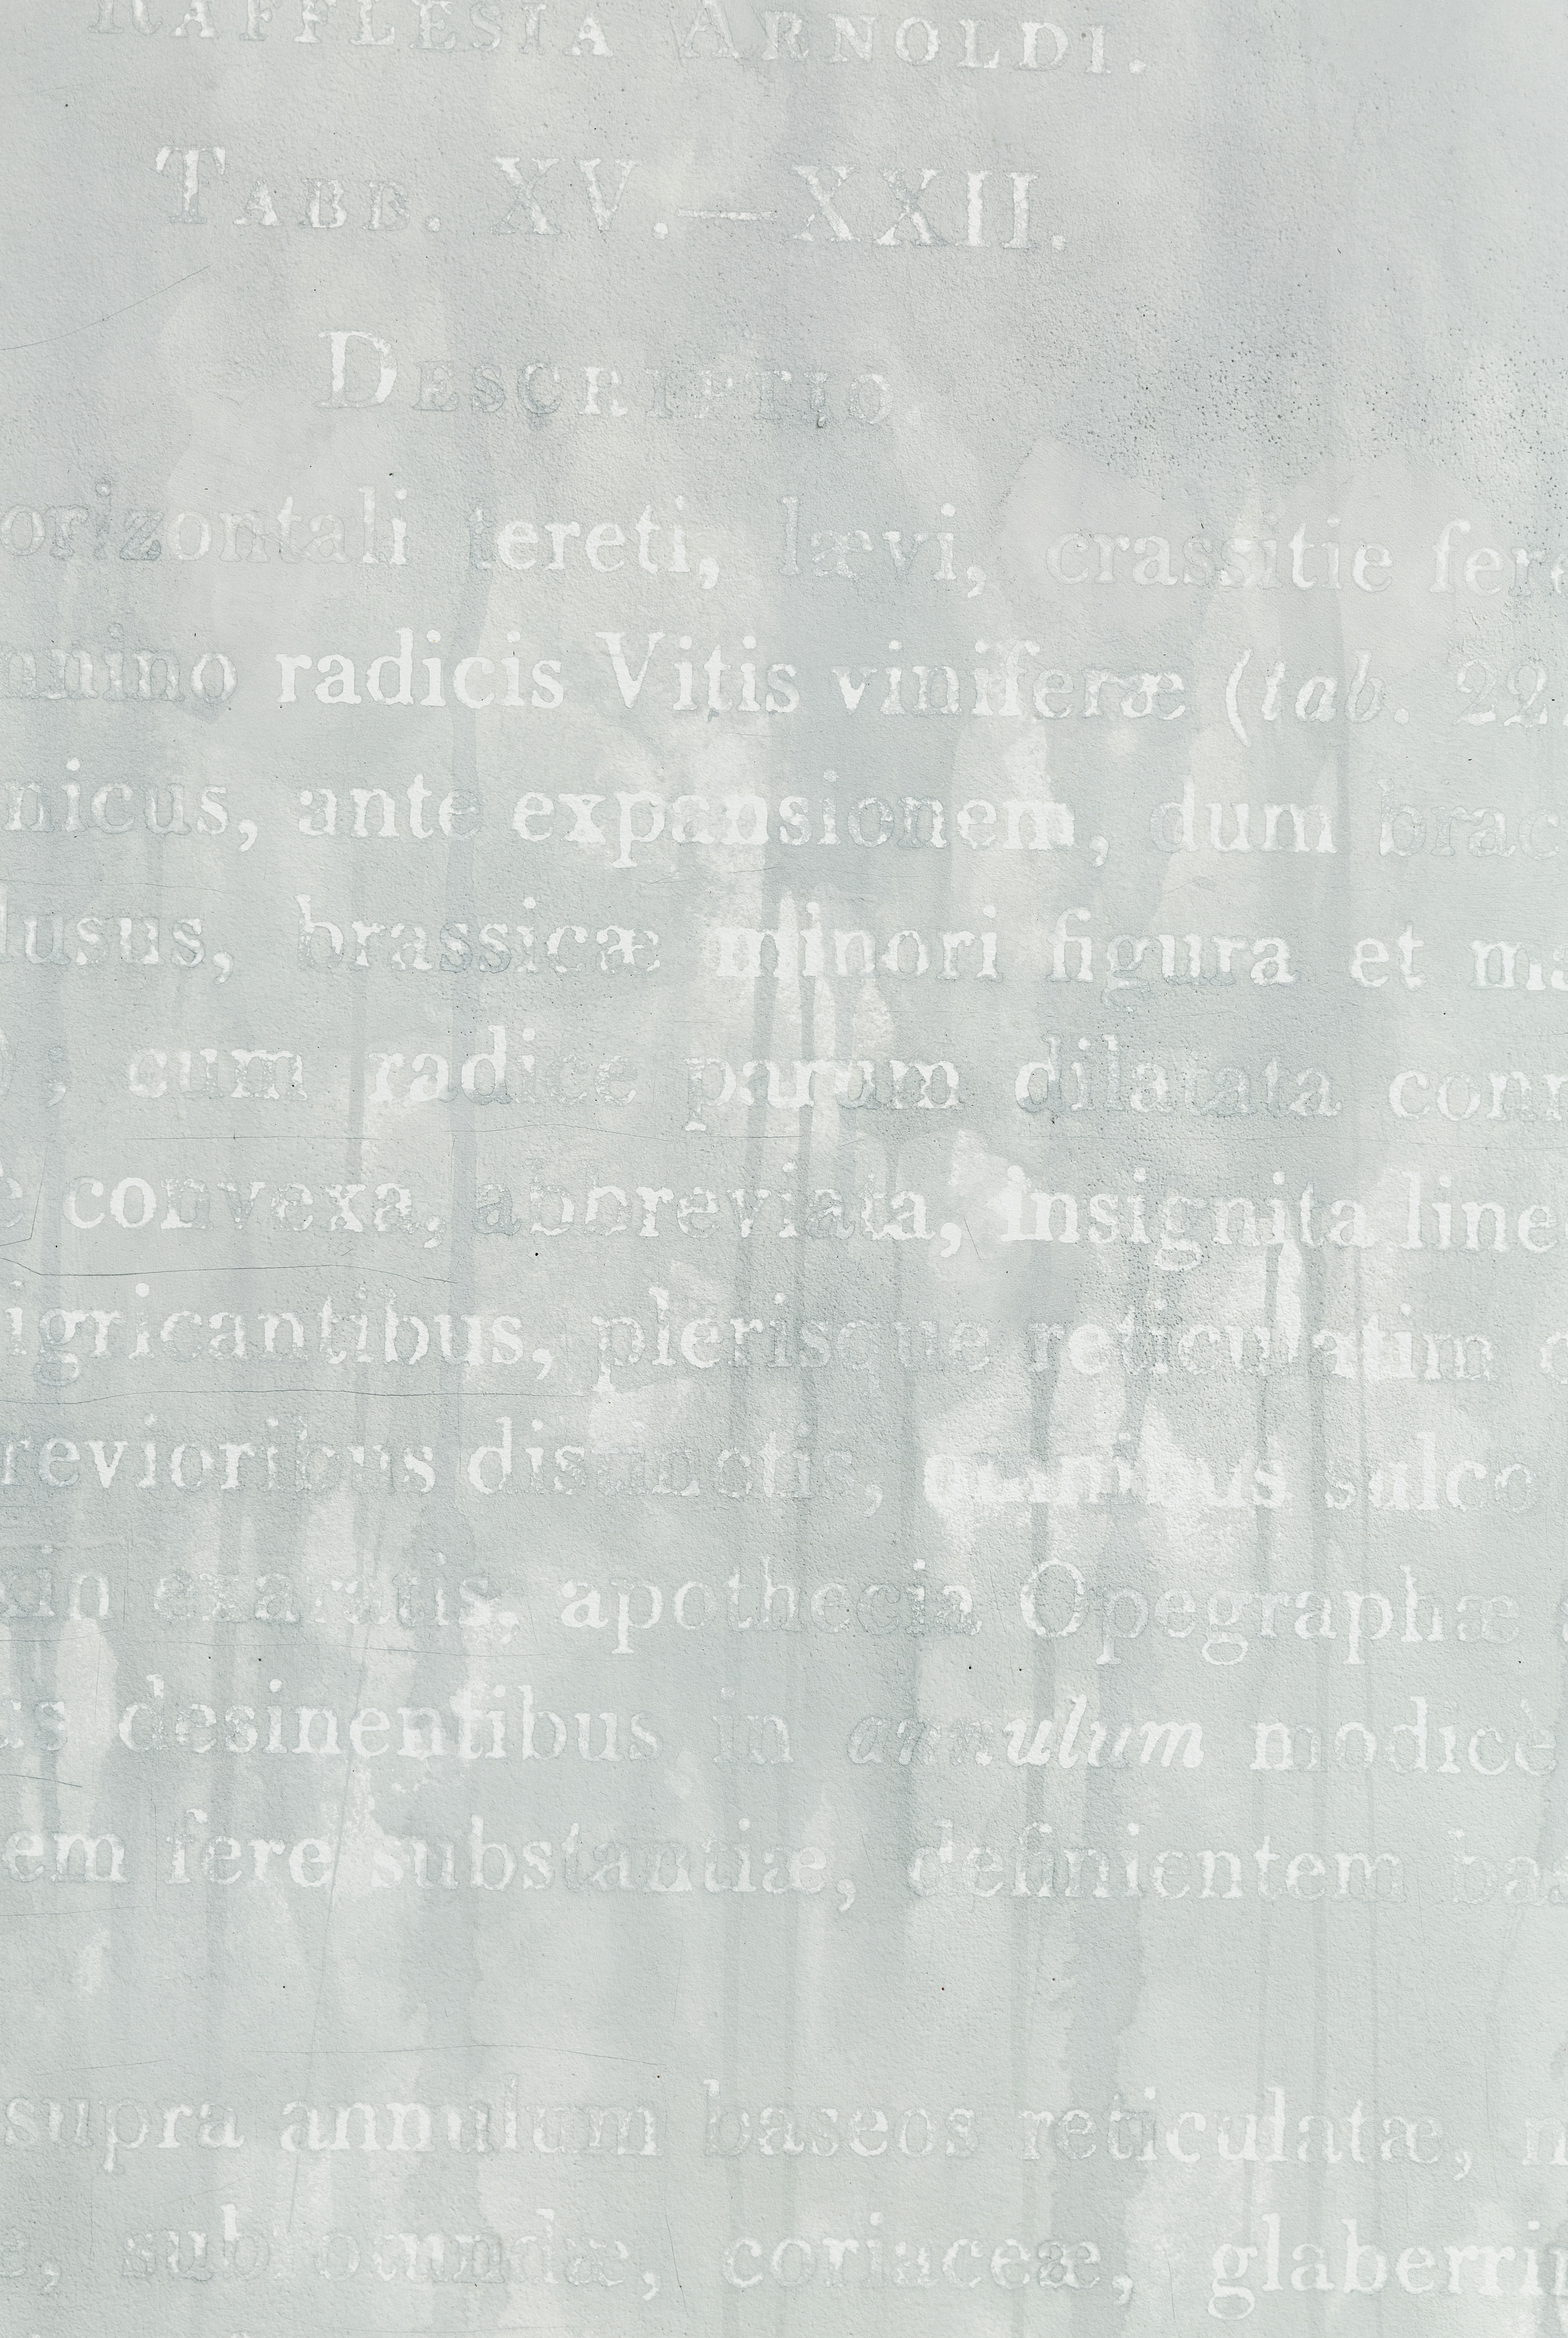 RAFFLESIA ARNOLDI.
TABB. XV.—XXII.
DESCRIPTIO
orizontali tereti, lævi, crassitie fere
radicis Vitis viniferæ (tab. 22.
nicus, ante expansionem, dum brac
lusus, brassicæ minori figura et ma
; cum radice parum dilatata conn
e convexa, abbreviata, insignita line
igricantibus, plerisque reticulatim
revioribus distinctis, omnibus sulco
exaratis, apothecia Opegraphæ
us desinentibus in annulum modicè
em fere substantiæ, definientem bas
supra annulum baseos reticulatæ,
e, subrotundæ, coriaceæ, glaberri